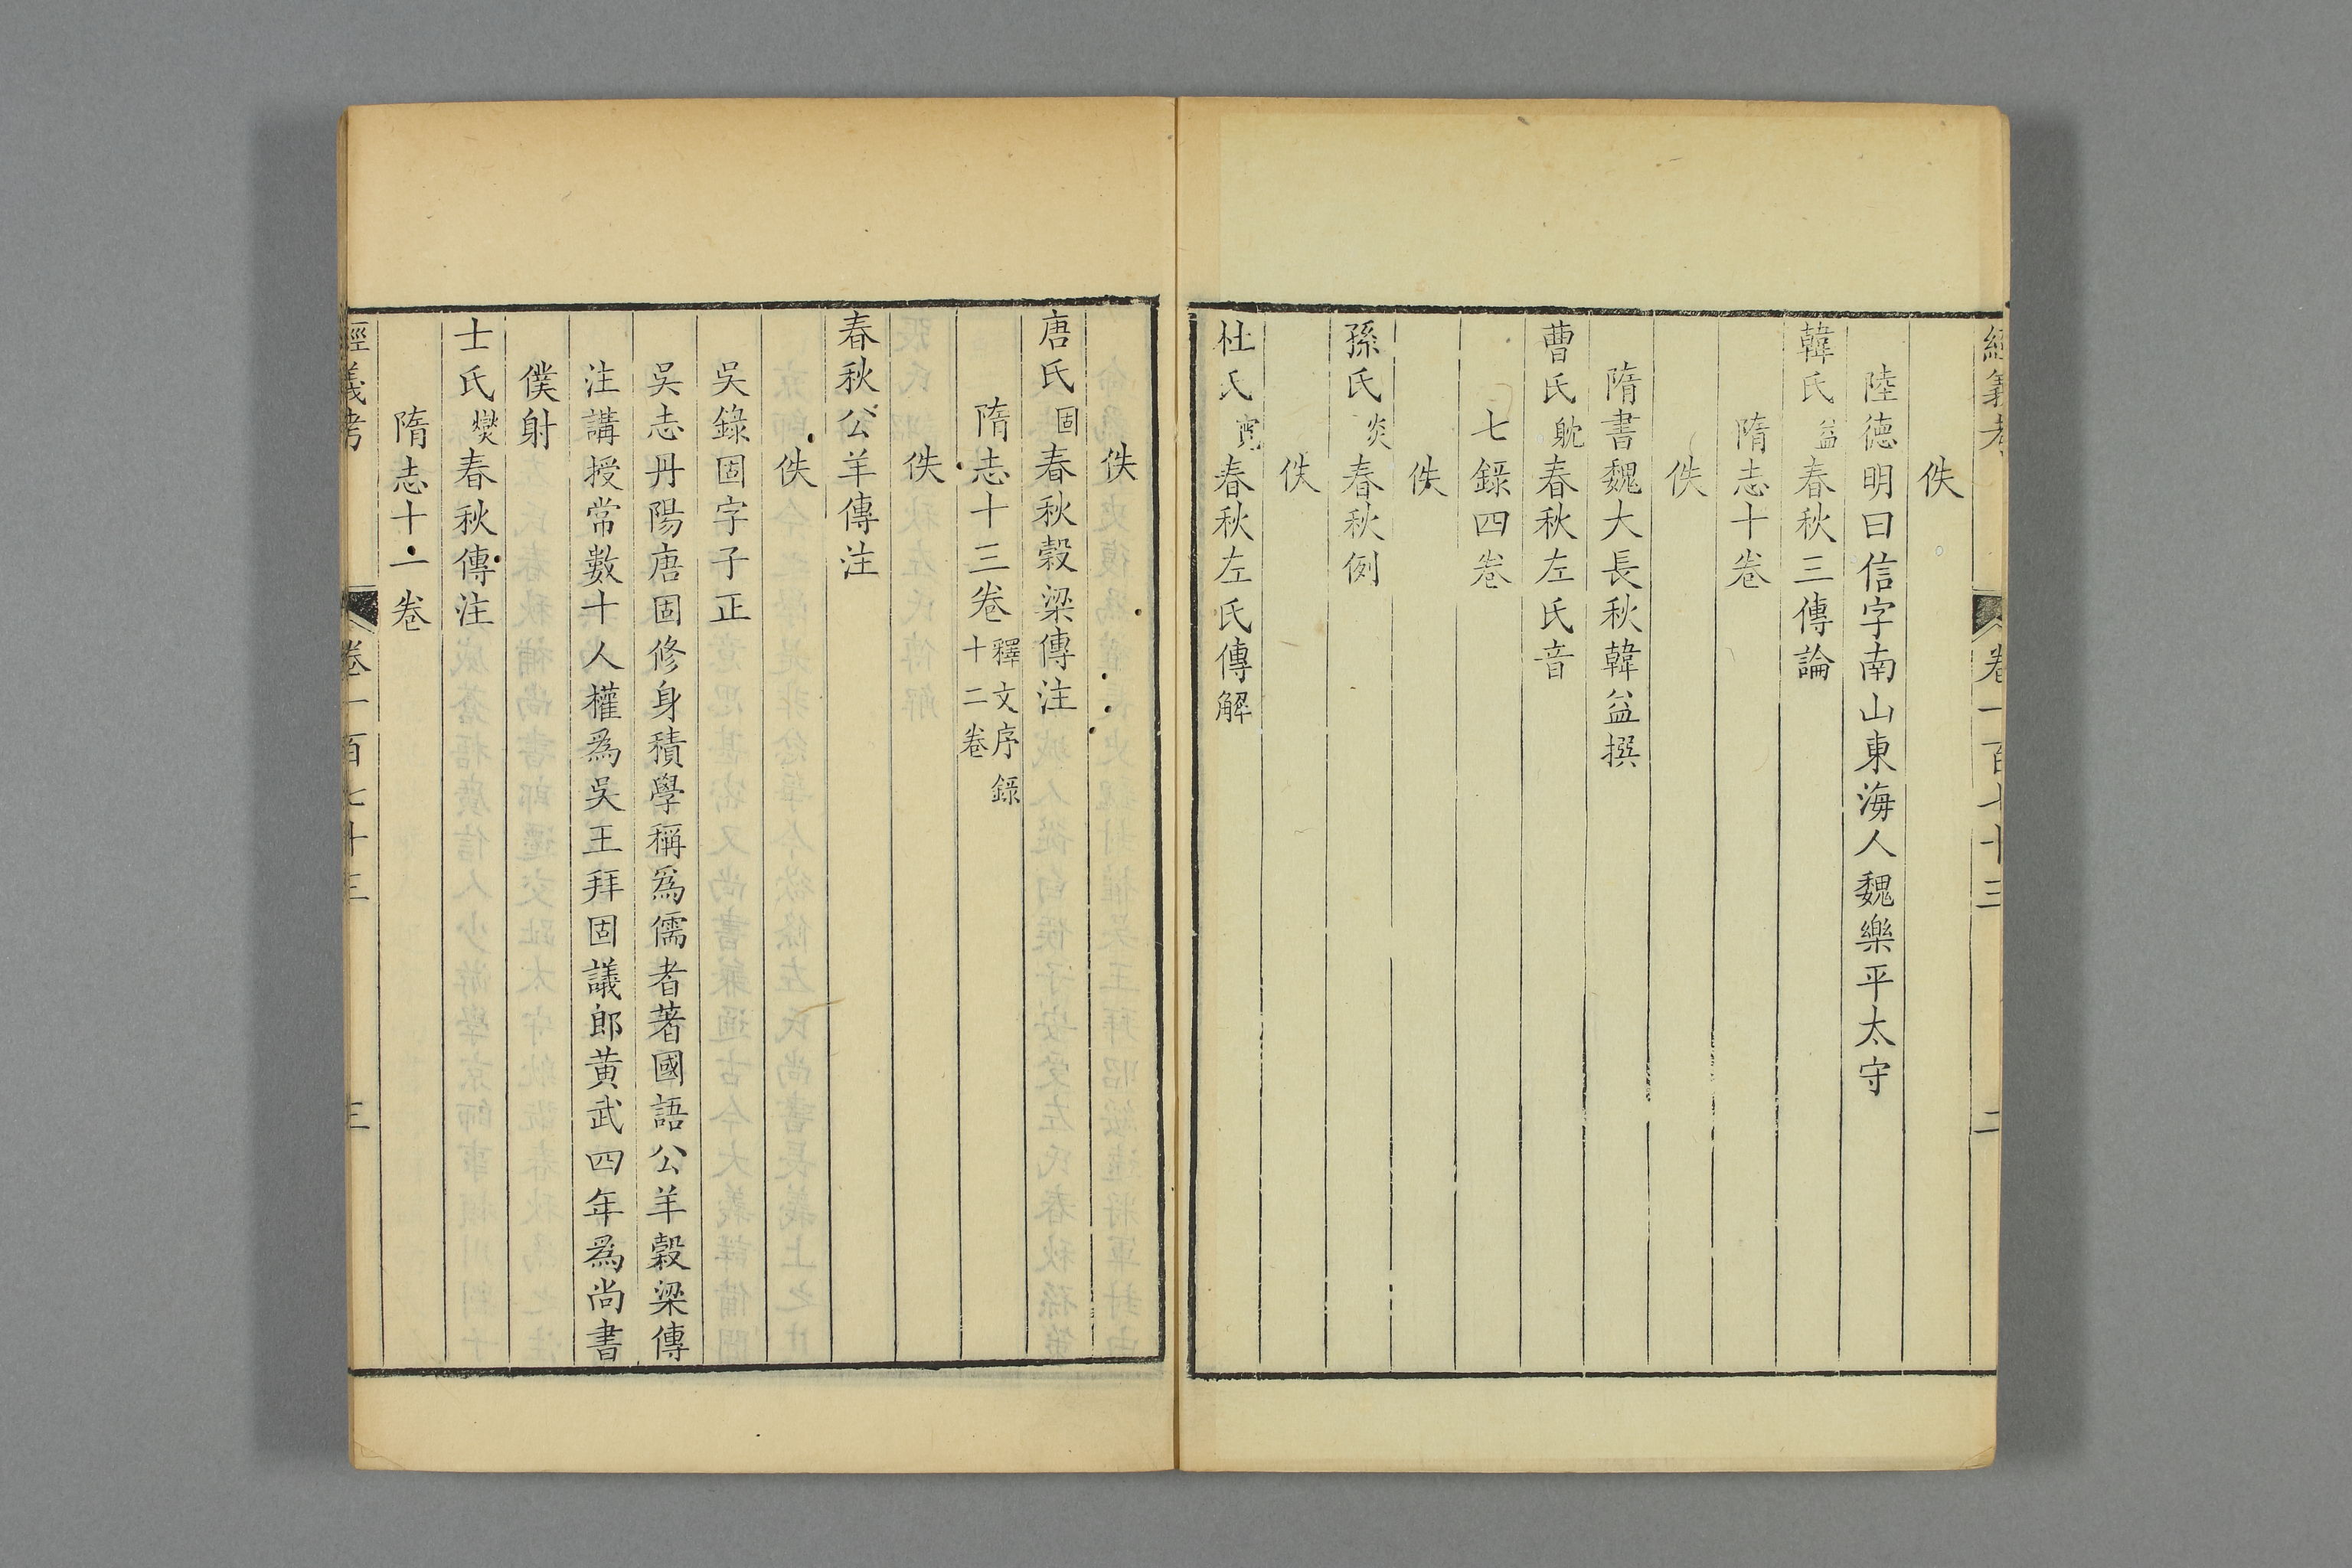 經義考 卷一百七十三 二
佚
陸德明曰信字南山東海人魏樂平太守
韓氏益春秋三傳論
隋志十卷
佚
隋書魏大長秋韓益撰
曹氏耽春秋左氏音
七錄四卷
佚
孫氏炎春秋例
佚
杜氏寬春秋左氏傳解
佚
唐氏固春秋穀梁傳注
隋志十三卷釋文序錄十二卷
佚
春秋公羊傳注
佚
吳錄固字子正
吳志丹陽唐固修身積學稱爲儒者著國語公羊穀梁傳
注講授常數十人權爲吳王拜固議郎黃武四年爲尚書
僕射
士氏燮春秋傳注
隋志十一卷
經義考 卷一百七十三 三